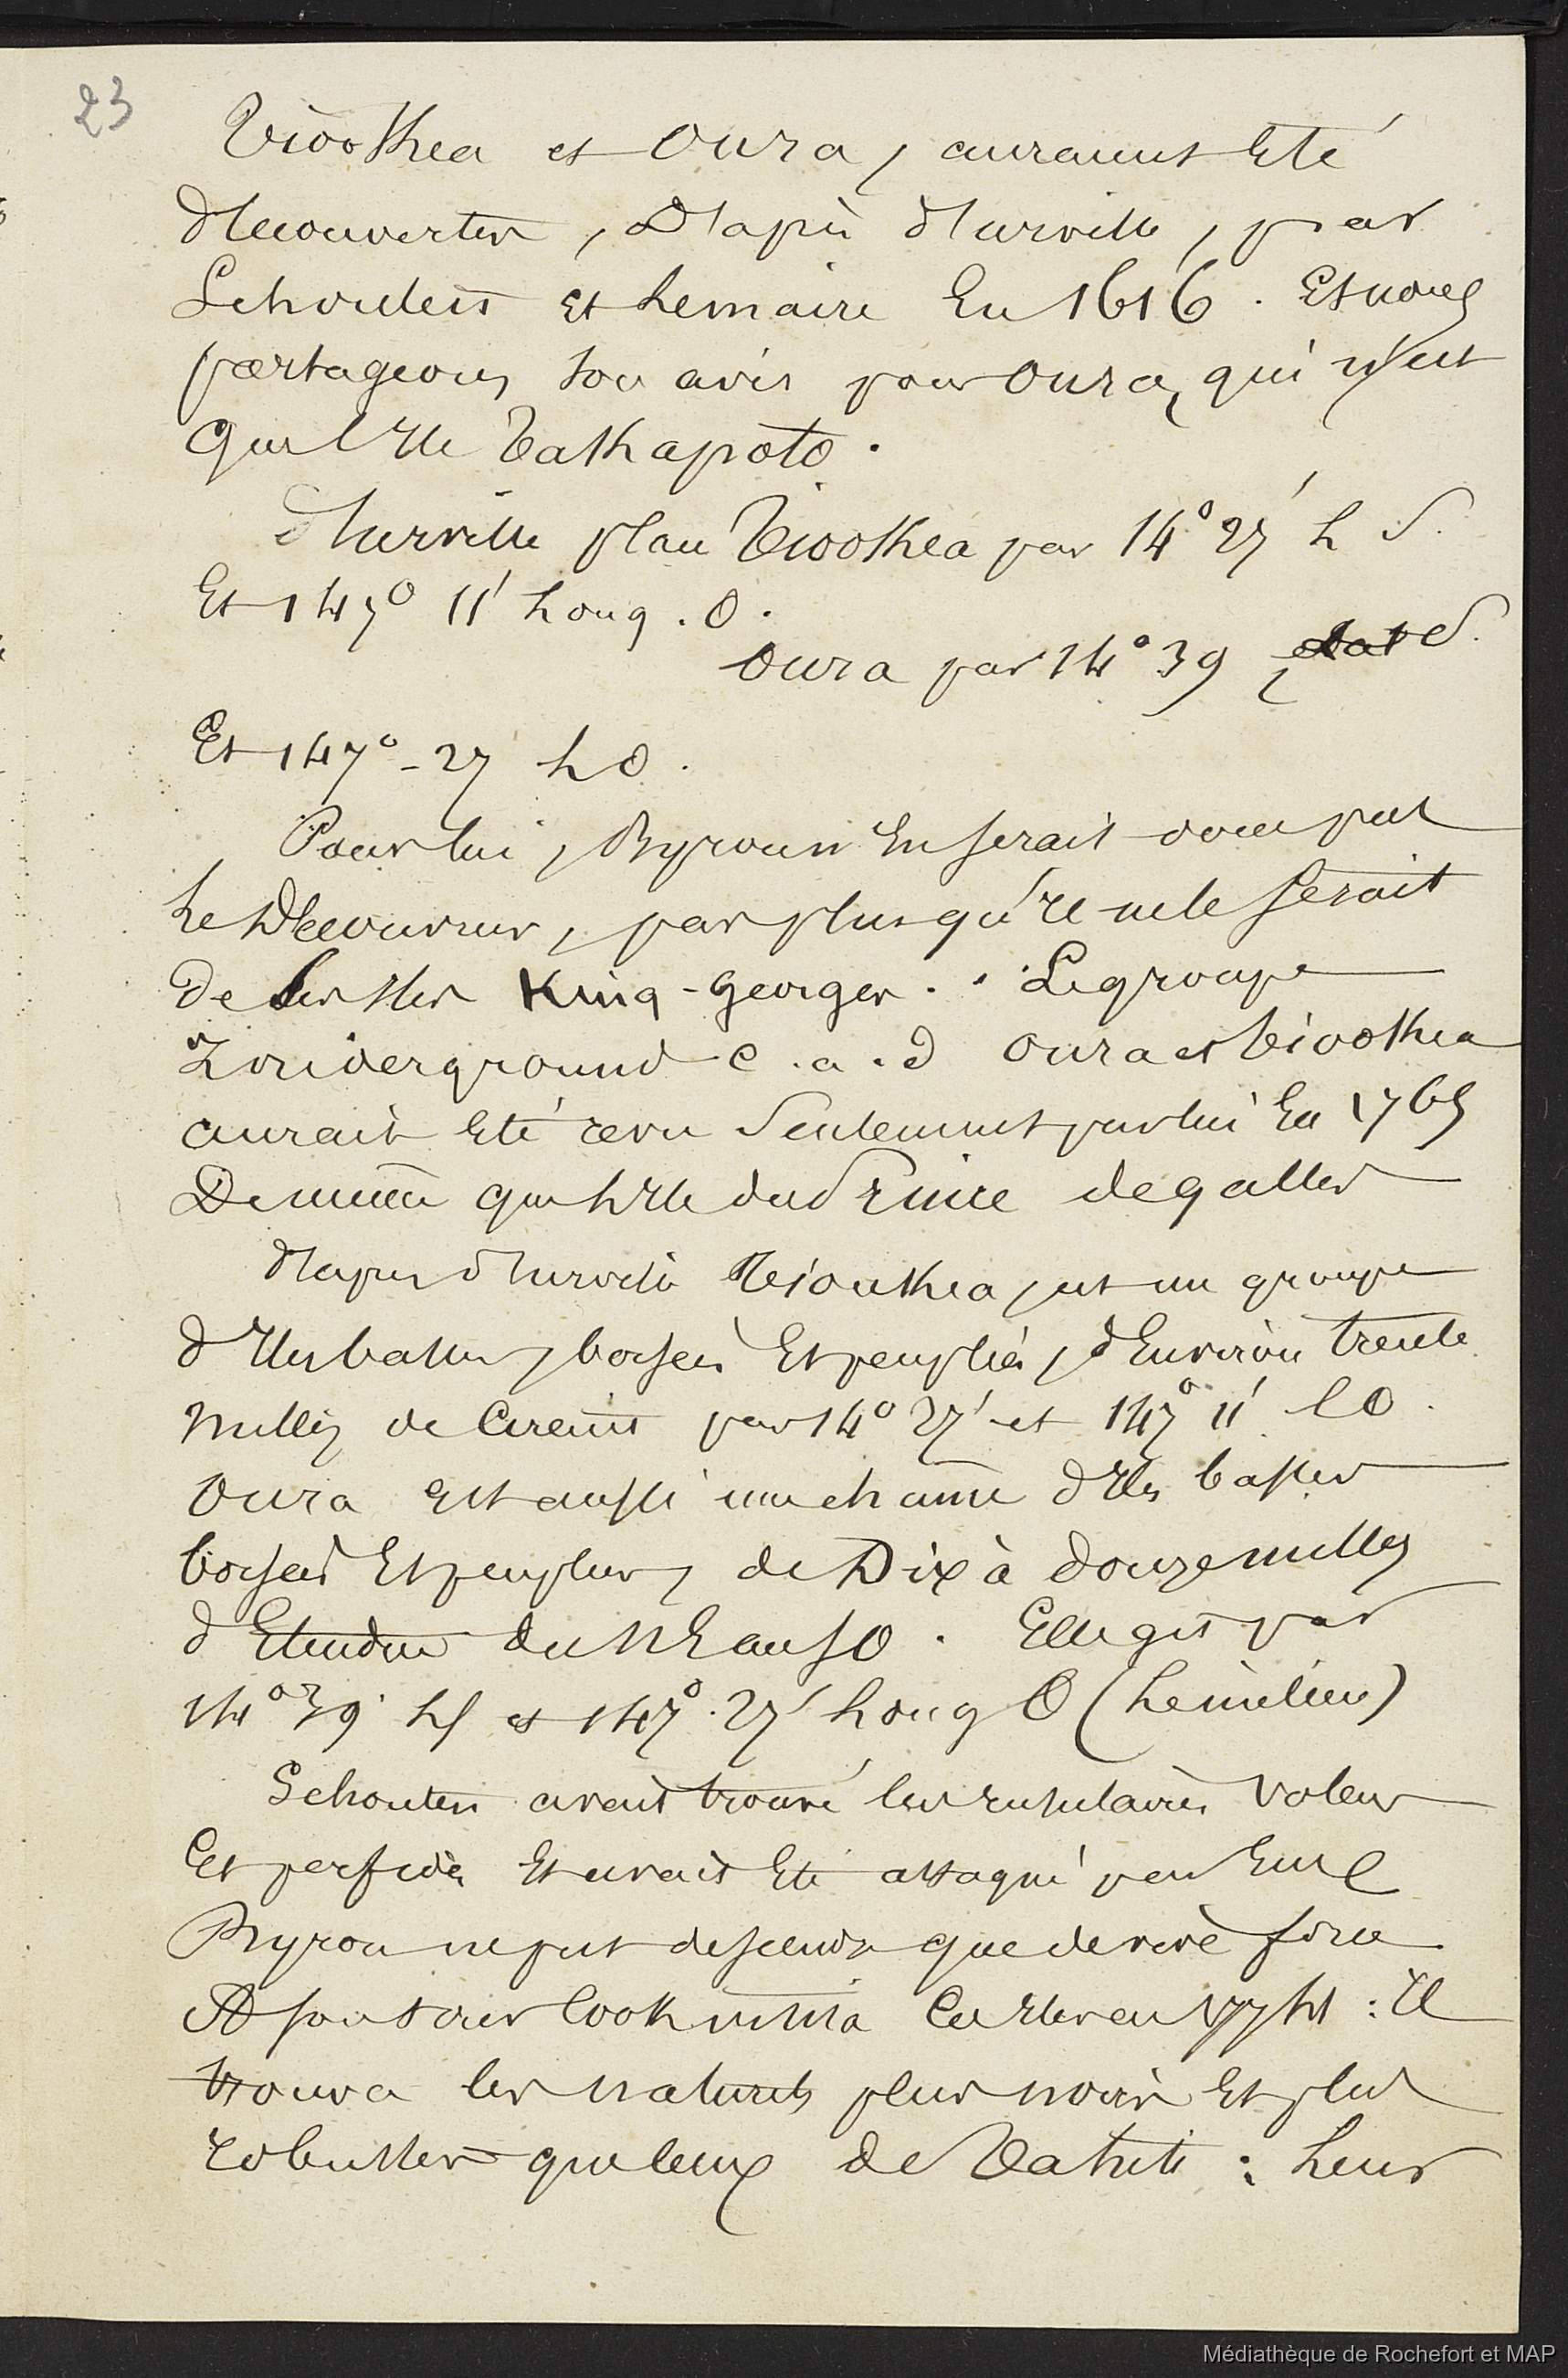 23
Tiookea et Oura, auraient été
découvertes, d'après d'Urville, par
Schouten et Lemaire en 1616. Et nous
partageons son avis pour Oura, qui n'est
que l'île Takapoto.
d'Urville place Tiookea par 14° 27' L S.
Et 147° 11' Long. O.
Oura par 14° 39 Lat S.
Et 147° - 27 L O.
Pour lui, Byron n'en serait donc pas
le découvreur, pas plus qu'il ne le serait
de ses îles King-Georges. Le groupe
Zonderground c.a.d Oura et Tiookea
aurait été revu seulement par lui en 1765
De même que l'île du Prince de galles
d'après d'Urville Tiookea, est un groupe
d'îles basses, boisées et peuplées, d'environ trente
milles de circuit par 14° 27' et 147° 11' l O.
Oura est aussi une chaîne d'îles basses
boisées et peuplées, de Dix à douze milles
d'Etendue du N E au S O. Elle gît par
14° 39' L S et 147° 27' Long O (Le milieu)
Schouten avait trouvé les insulaires voleurs
et perfides et avait été attaqué par eux
Byron ne put descendre que de vive force
A son tour Cook visita ces îles en 1774 : il
trouva les naturels plus noirs et plus
robustes que ceux de Tahiti : Leur
Médiathèque de Rochefort et MAP